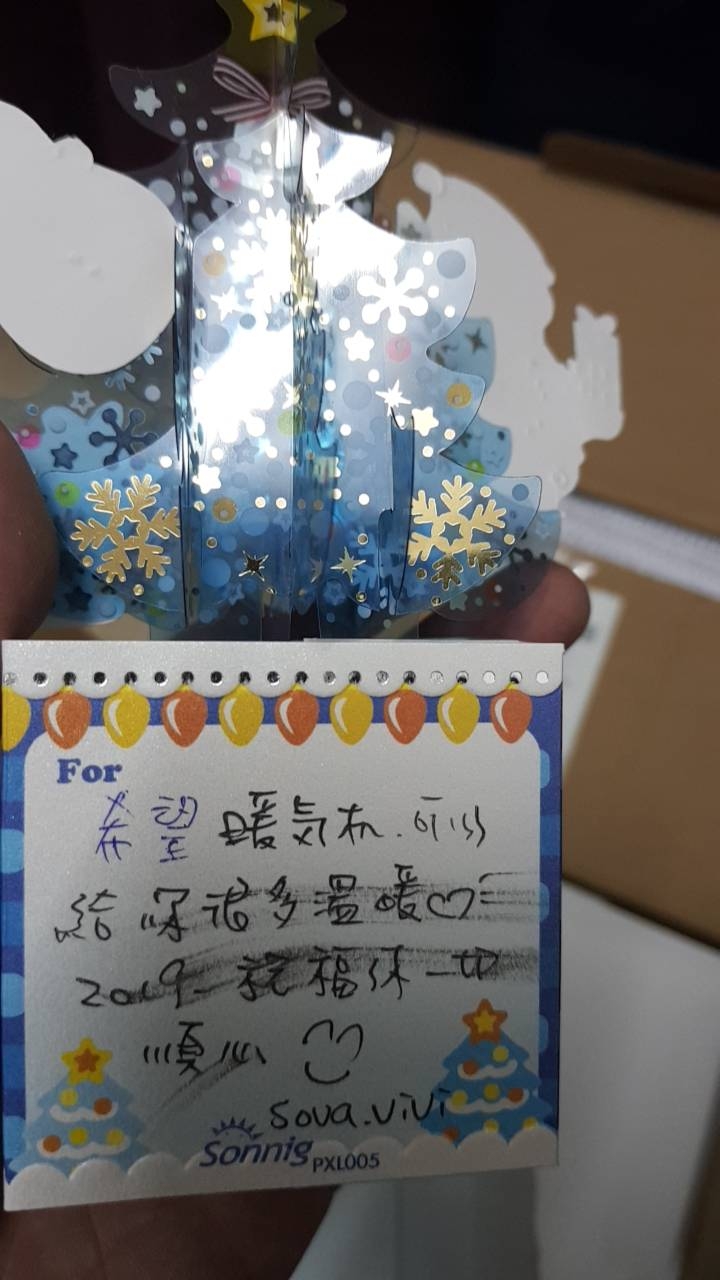 For
希望暖気机.可以
給深諾多溫暖♡
2019 祝福你一切
順心
sova.vivi
Sonnig PXL005